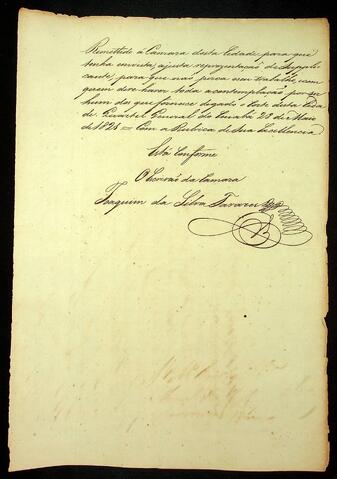 Remettido á Camara desta Cidade para que
tenha em vista, a justa representação do Supp.
cante, para que não perca seu trabalho, e com
quem deve haver toda a contemplação por ser
hum dos que fornece de gado o Corte desta Cida
de. Quartel General do Cuiabá 28 de Maio
de 1821 = Com a Rubrica de Sua Excellencia
Está Conforme
O Escrivão da Camara
Joaquim da Silva Tavares